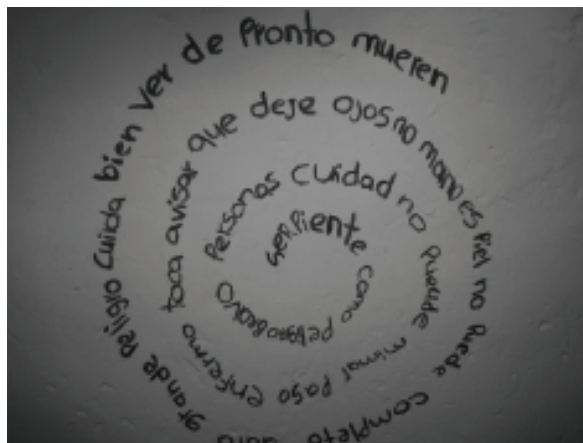 serpiente como peligroso personas cuidad no puede mirar paso enfermo toca avisar que deje ojos no mano es piel no puede completo grande peligro cuida bien ver de pronto mueren